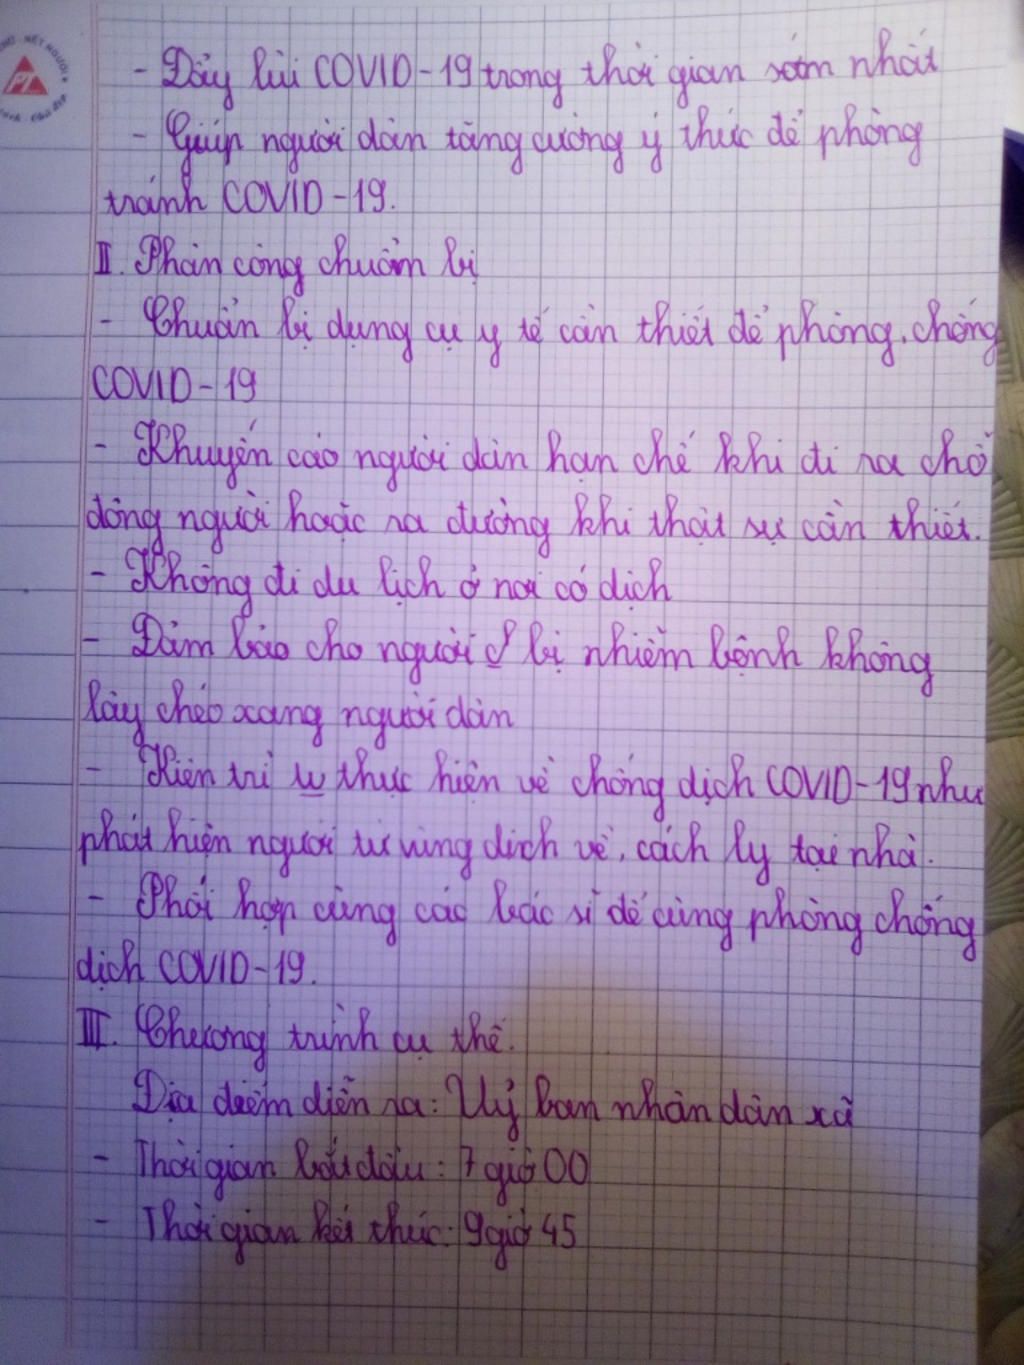 - Đẩy lùi COVID-19 trong thời gian sớm nhất
- Giúp người dân tăng cường ý thức để phòng
tránh COVID-19.
II. Phân công chuẩn bị
- Chuẩn bị dụng cụ y tế cần thiết để phòng, chống
COVID-19
- Khuyến cáo người dân hạn chế khi đi ra chỗ
đông người hoặc ra đường khi thật sự cần thiết.
- Không đi du lịch ở nơi có dịch
- Đảm bảo cho người bị nhiễm bệnh không
lây chéo xang người dân
- Kiên trì thực hiện về chống dịch COVID-19 như
phát hiện người từ vùng dịch về, cách ly tại nhà.
- Phối hợp cùng các bác sĩ để cùng phòng chống
dịch COVID-19.
III. Chương trình cụ thể.
Địa điểm diễn ra: Uỷ ban nhân dân xã
- Thời gian bắt đầu: 7 giờ 00
- Thời gian kết thúc: 9 giờ 45